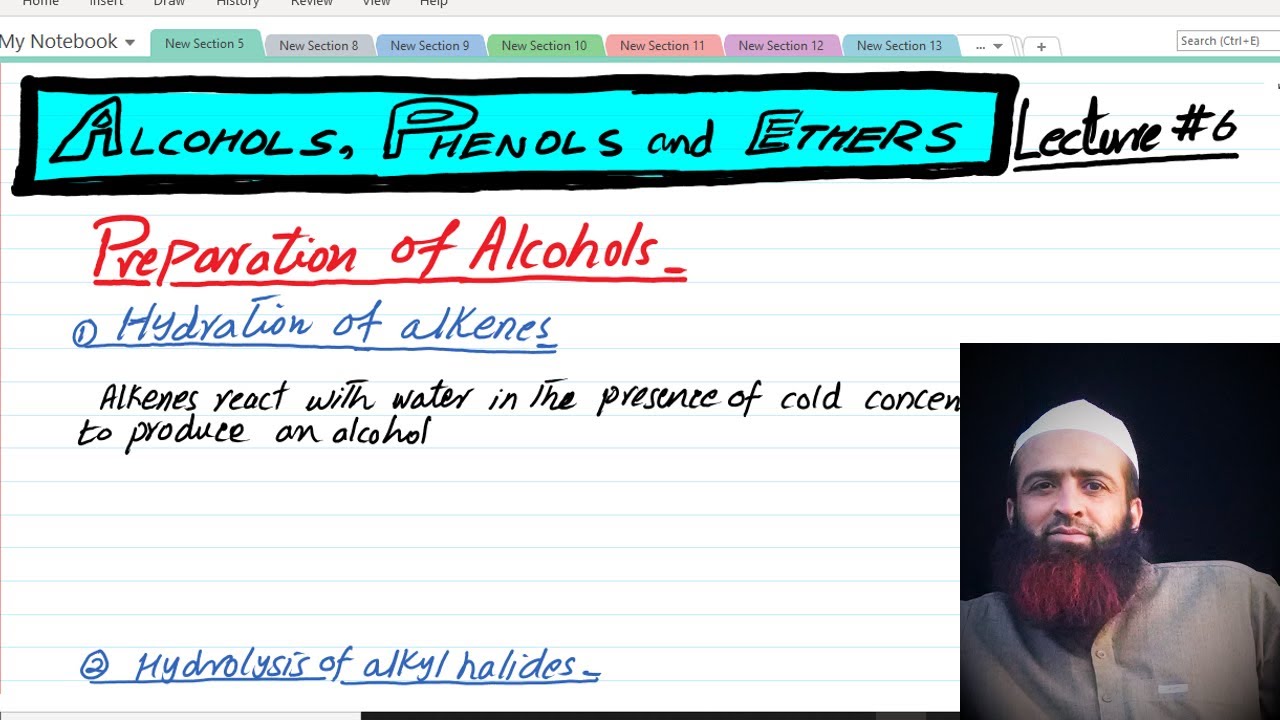 Home Insert Draw History Review View Help
My Notebook New Section 5 New Section 8 New Section 9 New Section 10 New Section 11 New Section 12 New Section 13 ... + Search (Ctrl+E)
ALCOHOLS, PHENOLS and ETHERS Lecture #6
Preparation of Alcohols
① Hydration of alkenes
Alkenes react with water in the presence of cold concen
to produce an alcohol
② Hydrolysis of alkyl halides